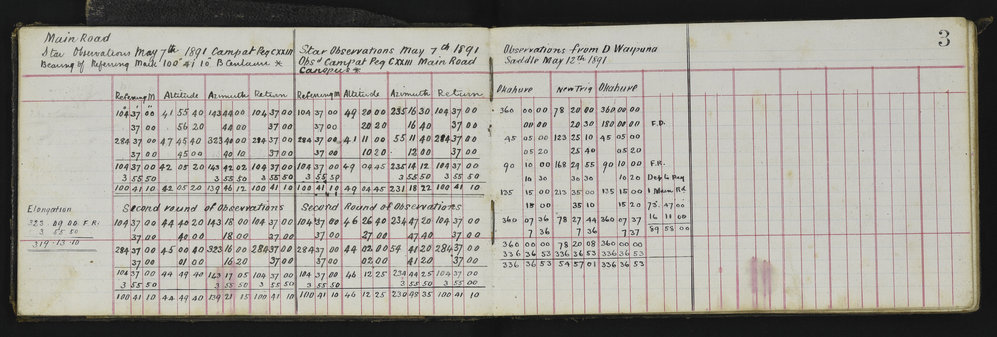 3
Main Road
Star Observations May 7th 1891 Camp at Peg CXXIII
Bearing of Refering Mark 100° 41' 10" B Centauri *
Refering M Altitude Azimuth Return
104 37 00 41 55 40 143 44 00 104 37 00
37 00 56 20 44 00 37 00
284 37 00 47 45 40 323 40 00 284 37 00
37 00 45 00 40 10 37 00
104 37 00 42 05 20 143 42 02 104 37 00
3 55 50 3 55 50 3 55 50
100 41 10 42 05 20 139 46 12 100 41 10
Second round of Observations
Elongation
323 09 00 F.R.
3 55 50
319 13 10
104 37 00 44 40 20 143 18 00 104 37 00
37 00 40 00 18 00 37 00
284 37 00 45 00 40 323 16 00 284 37 00
37 00 01 00 16 20 37 00
104 37 00 44 49 40 143 17 05 104 37 00
3 55 50 3 55 50 3 55 50
100 41 10 44 49 40 139 21 15 100 41 10
Star Observations May 7th 1891
Obsd Camp at Peg CXXIII Main Road
Canopus *
Refering M Altitude Azimuth Return
104 37 00 49 20 00 235 16 30 104 37 00
37 00 20 20 16 40 37 00
284 37 00 41 11 00 55 11 40 284 37 00
37 00 10 20 12 00 37 00
104 37 00 49 04 45 235 14 12 104 37 00
3 55 50 3 55 50 3 55 50
100 41 10 49 04 45 231 18 22 100 41 10
Second Round of Observations
104 37 00 46 26 40 234 47 20 104 37 00
37 00 27 00 47 40 37 00
284 37 00 44 02 00 54 41 20 284 37 00
37 00 02 00 41 20 37 00
104 37 00 46 12 25 234 44 25 104 37 00
3 55 50 3 55 50 3 55 00
100 41 10 46 12 25 230 48 35 100 41 10
Observations from D Waipuna
Saddle May 12th 1891
Okahure New Trig Okahure
360 00 00 78 20 00 360 00 00
00 00 20 30 180 00 00 F.D.
45 05 00 123 25 10 45 05 00
05 20 25 40 05 20
90 10 00 168 29 55 90 10 00 F.R.
10 30 30 30 10 20 Dep 4 Peg
135 15 00 213 35 00 135 15 00 Main Rd
18 00 35 10 15 20 73 47 00
360 07 36 78 27 44 360 07 37 16 11 00
7 36 7 36 7 37 89 58 00
360 00 00 78 20 08 360 00 00
336 36 53 336 36 53 336 36 53
336 36 53 54 57 01 336 36 53